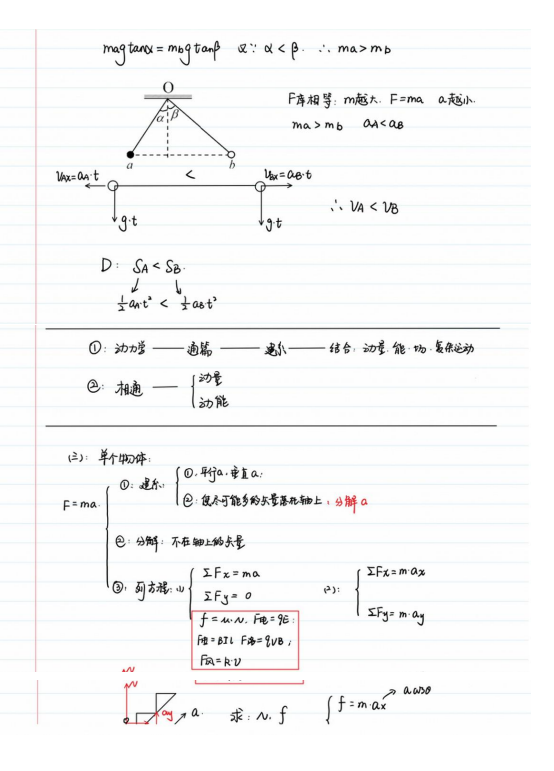 mag tanα = mbg tanβ 又∵ α < β. ∴ ma > mb
O
α β
a b
F库相等: m越大. F=ma a越小.
ma > mb aA < aB
VAx = aA·t < VBx = aB·t
g·t g·t
∴ VA < VB
D: SA < SB.
½aA·t² < ½aB·t²
①: 动力学 —— 通篇 —— 建系 —— 结合: 动量. 能. 场. 复杂运动
②: 相通 — { 动量
动能
(三): 单个物体:
F = ma.
①: 建系: { ①. 平行a. 垂直a;
②: 使尽可能多的矢量落在轴上; 分解a
②: 分解: 不在轴上的矢量
③: 列方程: (1) { ΣFx = ma (2): { ΣFx = m·ax
ΣFy = 0 ΣFy = m·ay
f = μ·N. F电 = qE;
F安 = BIL F洛 = qVB;
F风 = k·v
N
N
ay a. 求: N, f { f = m·ax a cosθ